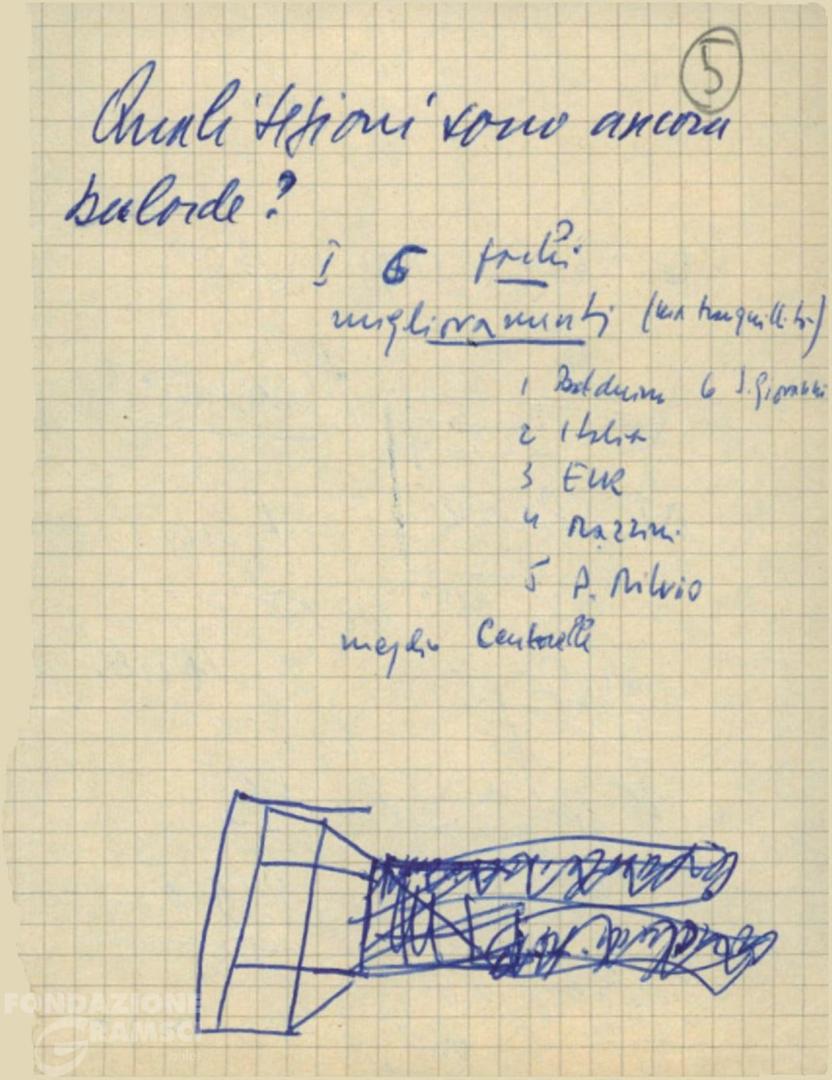 5
Quali sezioni sono ancora
balorde?
I 6
miglioramenti (ma tranquillità)
1 Balduina 6 S. Giovanni
2 Italia
3 EUR
4 Mazzini
5 P. Milvio
meglio Centocelle
FONDAZIONE
GRAMSCI